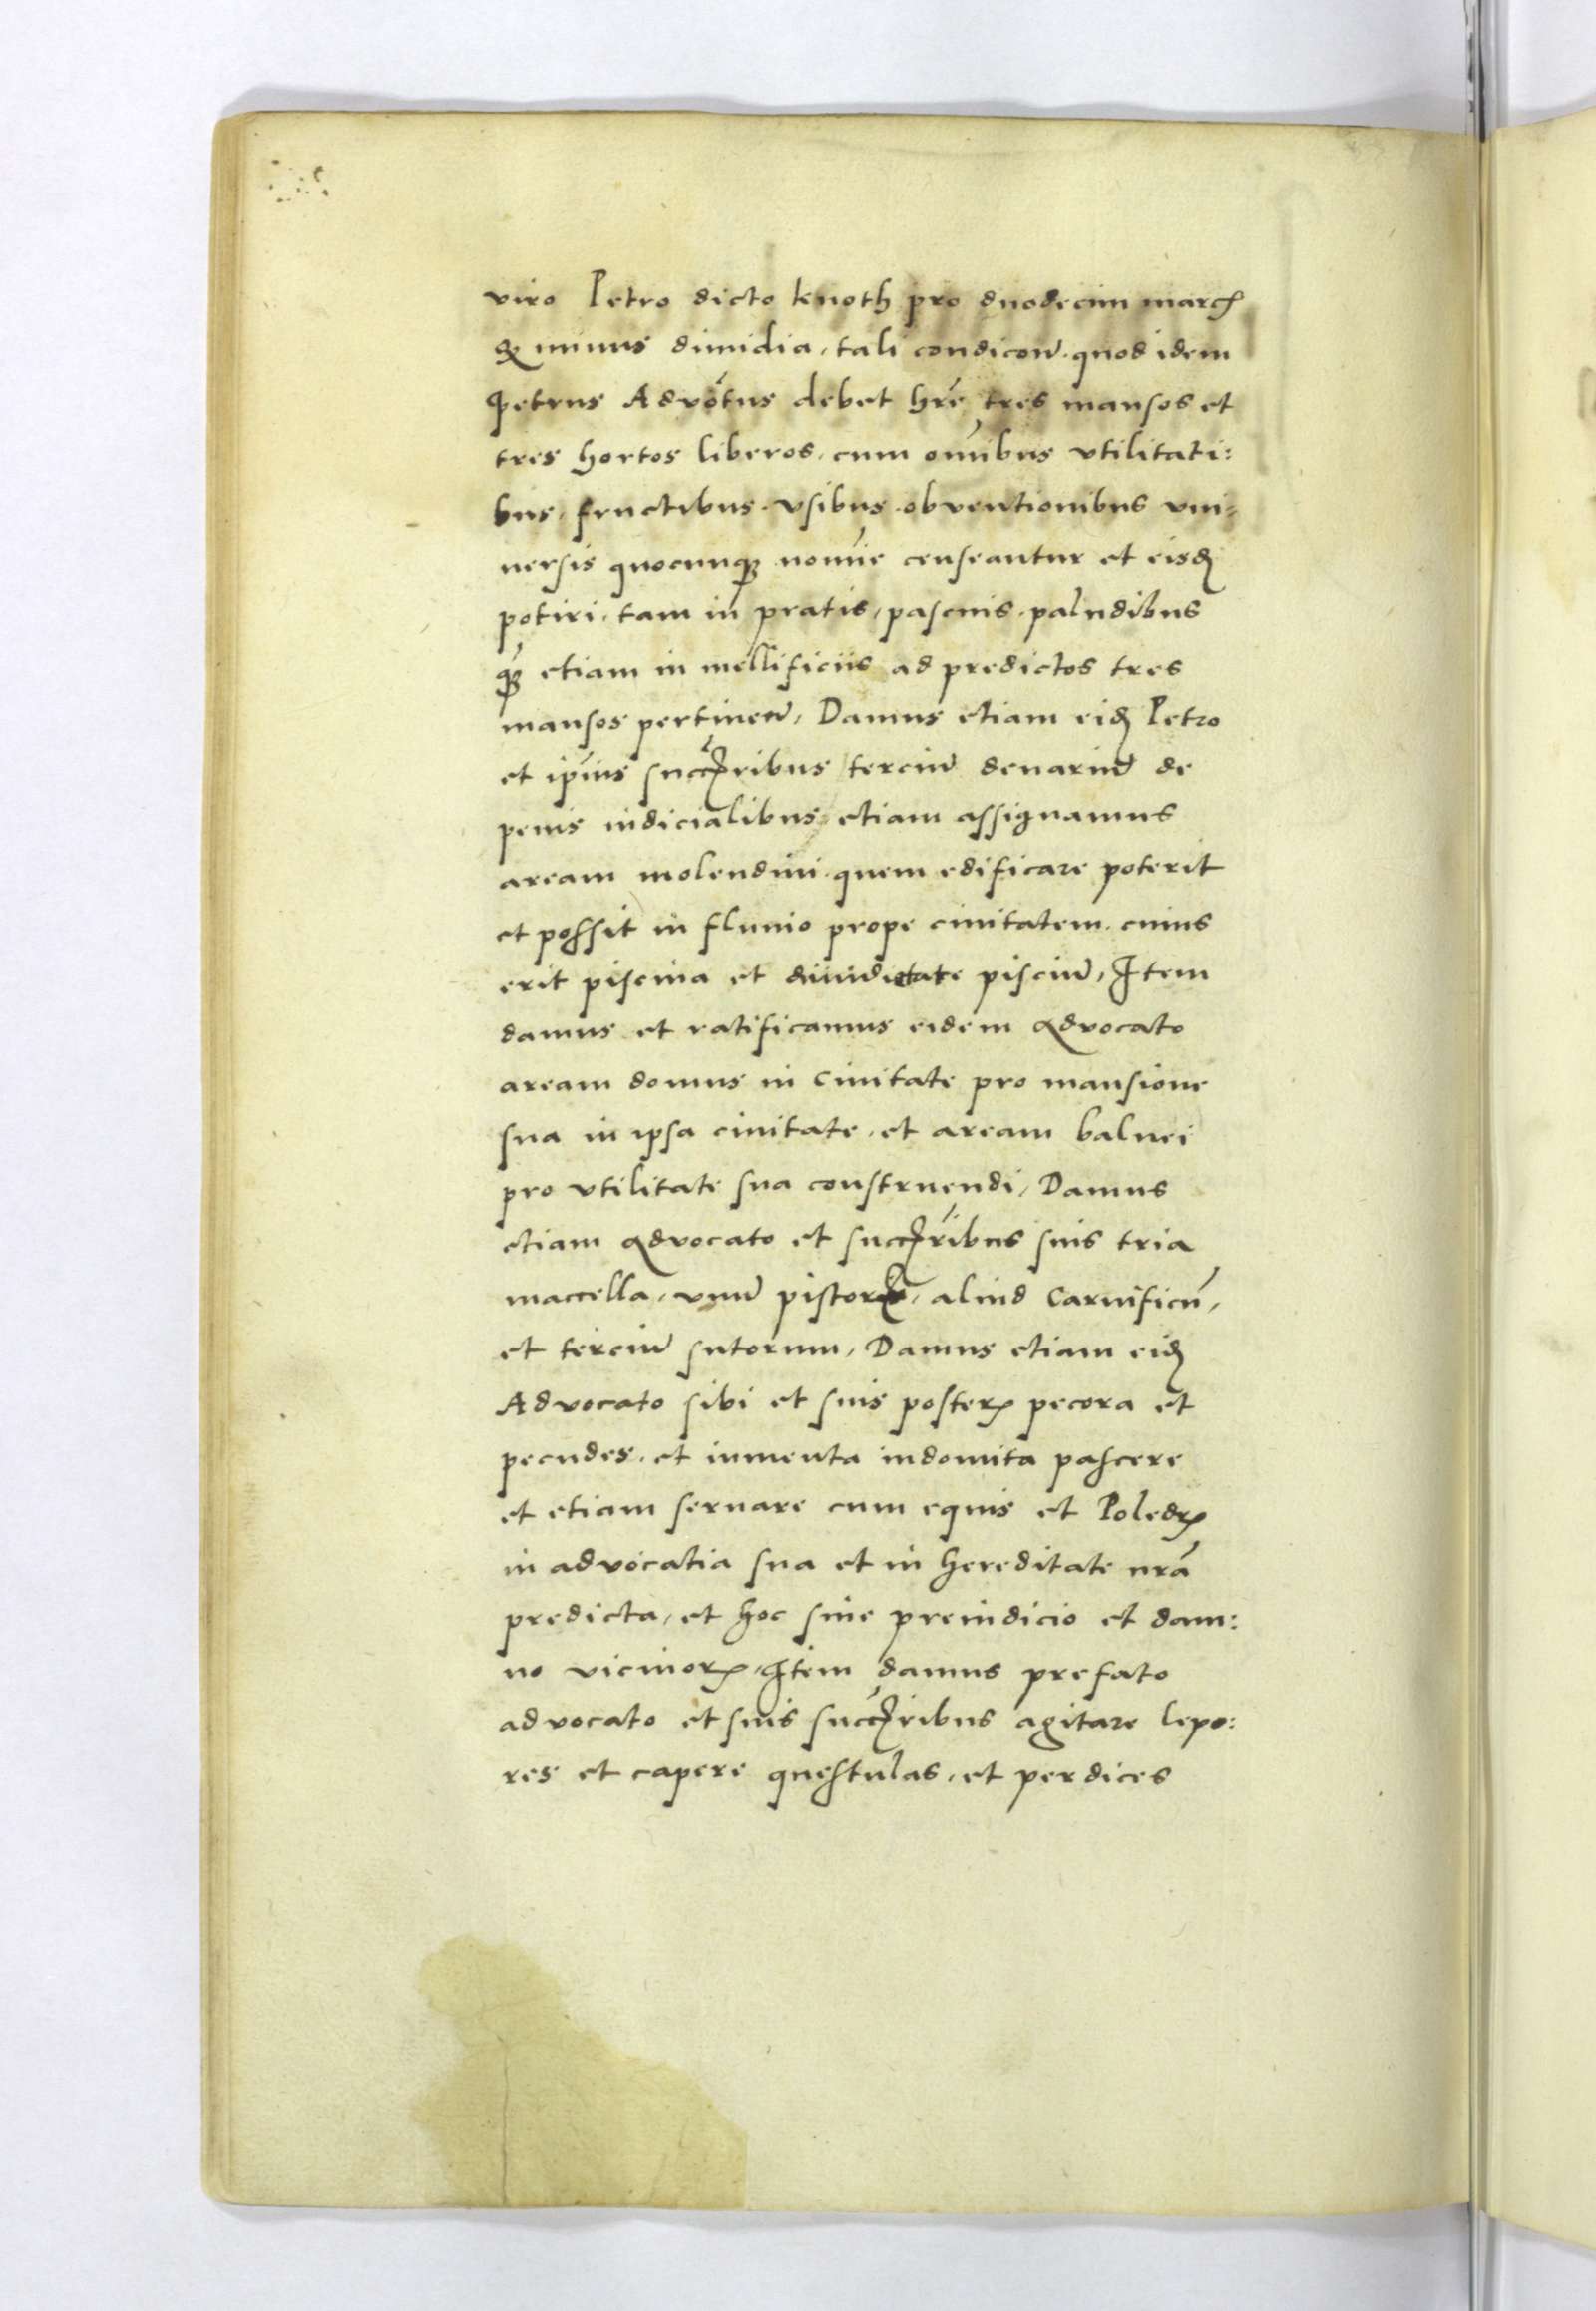 viro Petro dicto knoth pro duodecim marcꝭ
minus dimidia, tali condicõn. quod idem
Petrus Advõtus debet hr̃e tres mansos et
tres hortos liberos, cum om̃ibus vtilitati:
bus, fructibus. vsibus. obventionibus vni-
uersis quocunqꝫ nomĩe censeantur et eisdꝫ
potiri, tam in pratis, pascuis. paludibus
qꝫ etiam in mellificiis ad predictos tres
mansos pertineñ, Damus etiam eidꝫ Petro
et ip̃ius succꝭribus terciũ denariũ de
penis iudicialibus, etiam assignamus
aream molendini. quem edificare poterit
et possit in fluuio prope ciuitatem. cuius
erit piscina et dimidietate pisciũ, Item
damus et ratificamus eidem advocato
aream domus in Ciuitate pro mansione
sua in ipsa ciuitate, et aream balnei
pro vtilitate sua construendi, Damus
etiam advocato et succꝭribus suis tria
maccella, vnũ pistorꝝ, aliud Carnificũ,
et terciũ sutorum, Damus etiam eidꝫ
Advocato sibi et suis posterꝭ pecora et
pecudes. et iumenta indomita pascere
et etiam seruare cum equis et Poledrꝭ
in advocatia sua et in hereditate nr̃a
predicta, et hoc sine preiudicio et dam:
no vicinorꝝ, Item damus prefato
advocato et suis succꝭribus agitare lepo:
res et capere questulas, et perdices